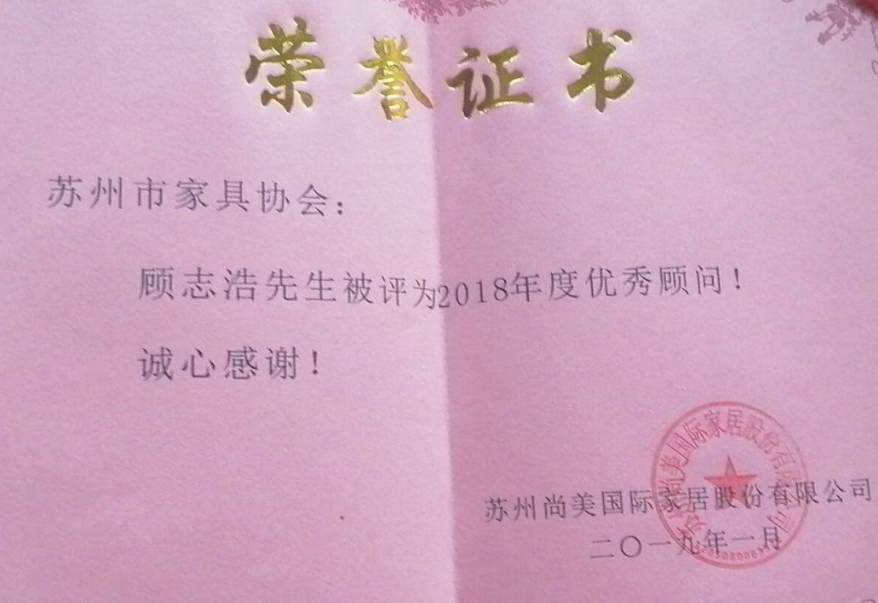 荣誉证书
苏州市家具协会：
顾志浩先生被评为2018年度优秀顾问！
诚心感谢！
苏州尚美国际家居股份有限公司
二〇一九年一月
苏州尚美国际家居股份有限公司